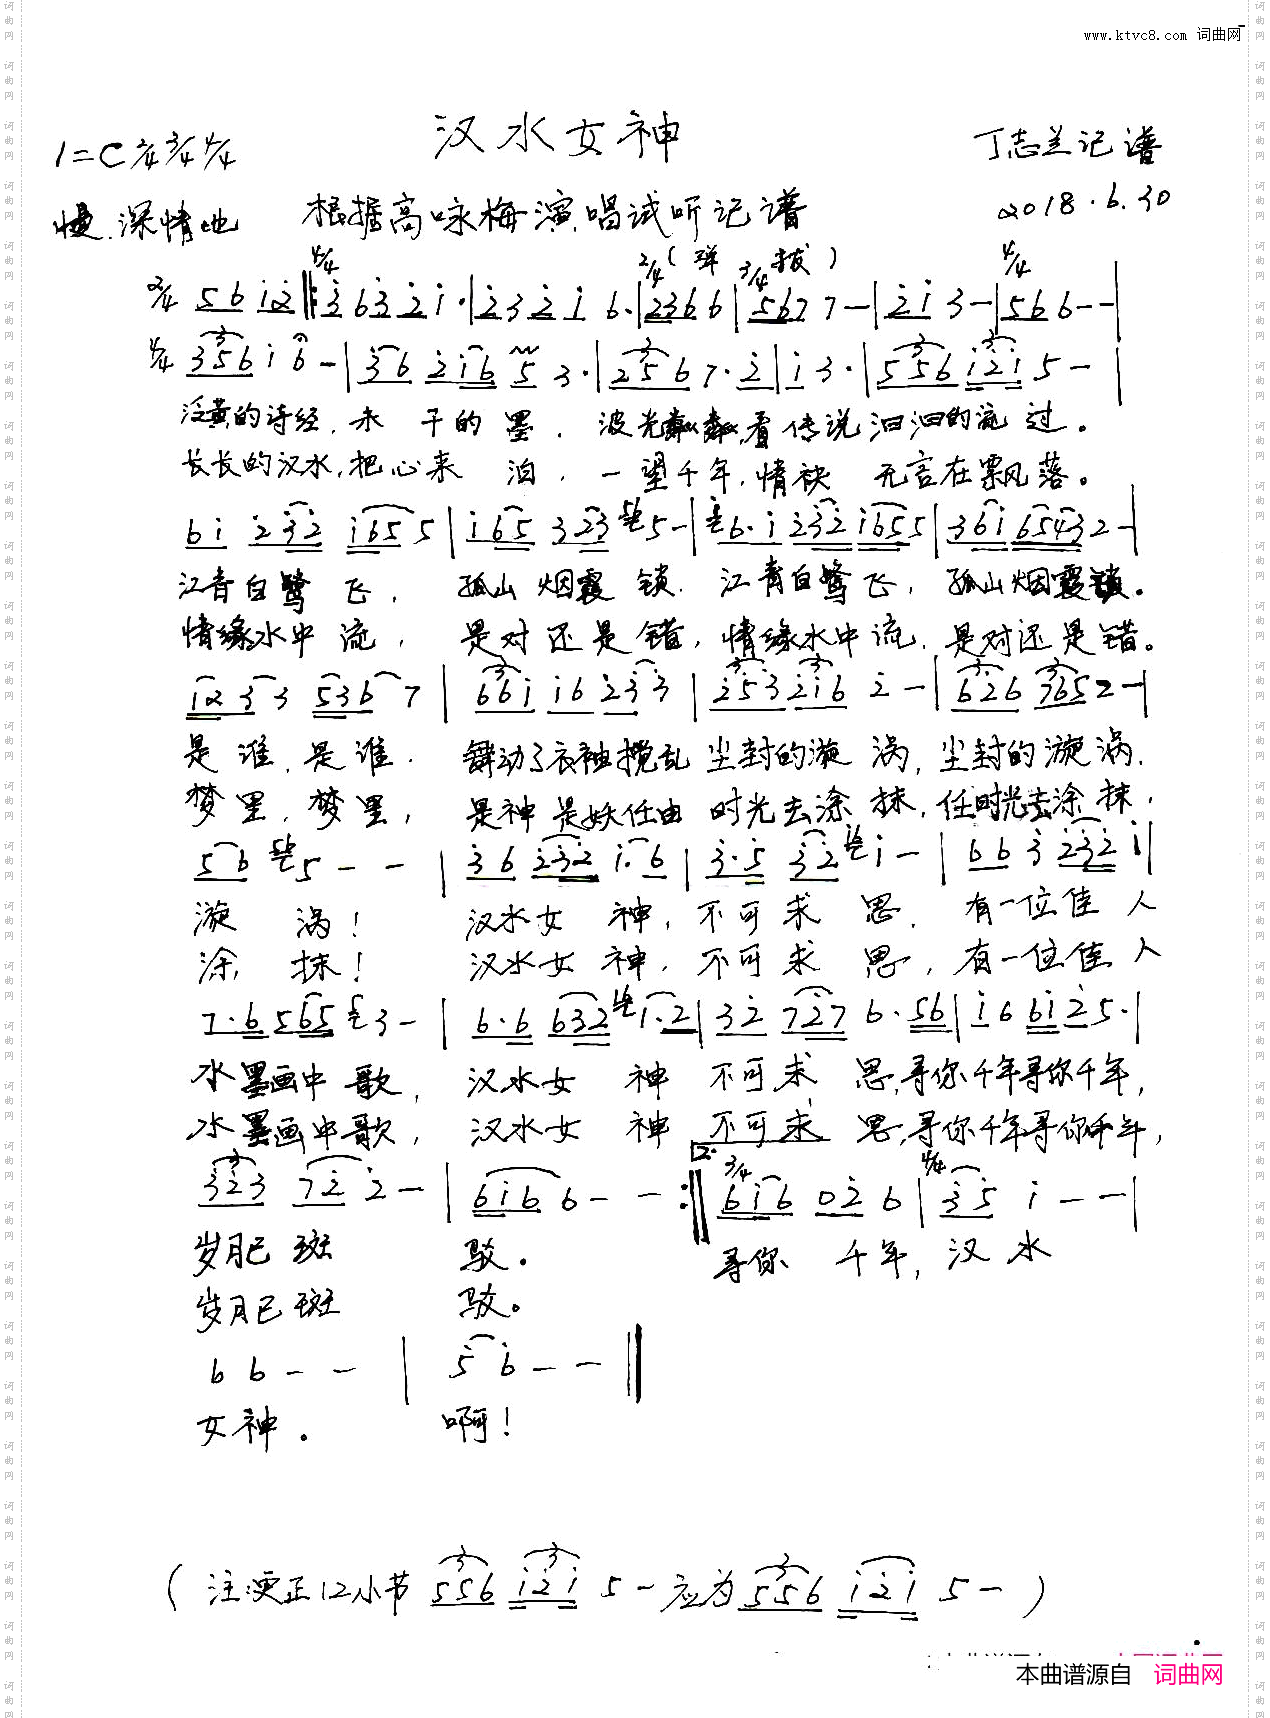 www.ktvc8.com 词曲网
汉水女神
1=C 2/4 3/4 4/4
丁志兰记谱
慢.深情地 根据高咏梅演唱试听记谱 2018.6.30
4/4 2/4 ( 弹 3/4 拨 ) 4/4
2/4 5 6 i 2̇ ‖: 3̇ 6 3̇ 2̇ i · | 2̇ 3 2̇ i 6 · | 2 3 6 6 | 5 6 7 7 — | 2̇ i 3 — | 5 6 6 — — |
4/4 3 5 6 i 6 — | 3̇ 6 2̇ i 6 5 3 · | 2 5 6 7 · 2̇ | i 3 · | 5 5 6 i 2̇ i 5 — |
泛黄的诗经,未 干的 墨. 波光粼粼,看 传说 汩汩的流 过。
长长的汉水,把心来 泊, 一望千年,情袂 无言在飘落。
6 i 2̇ 3̇ 2̇ i 6 5 5 | i 6 5 3 2 3 5 — | 6 · i 2̇ 3̇ 2̇ i 6 5 5 | 3 6 i 6 5 4 3 2 — |
江青白鹭 飞, 孤山 烟霞 锁. 江青白鹭飞, 孤山烟霞锁.
情缘水中 流, 是对还是 错, 情缘水中流. 是对还是错。
i 2̇ 3̇ 3 5 3 6 7 | 6 6 i i 6 2̇ 3̇ 3 | 2̇ 5 3 2̇ i 6 2̇ — | 6 2̇ 6 7 6 5 2 — |
是 谁, 是 谁. 舞动了衣袖搅乱 尘封的漩 涡, 尘封的漩 涡.
梦里, 梦里, 是神是妖任由 时光去涂 抹, 任时光去涂 抹,
5 6 5 — — | 3̇ 6 2̇ 3̇ 2̇ i · 6 | 3̇ · 5̇ 3̇ 2̇ i — | 6 6 3̇ 2̇ 3̇ 2̇ i |
漩 涡! 汉水女 神, 不可求 思, 有一位佳 人
涂 抹! 汉水女 神, 不可求 思, 有一位佳 人
7 · 6 5 6 5 3 — | 6 · 6 6 3 2 i · 2 | 3 2̇ 7 2̇ 7 6 · 5 6 | i 6 6 i 2̇ 5 · |
水墨画中 歌, 汉水女 神 不可求 思,寻你千年寻你千年,
水墨画中歌, 汉水女 神 不可求 思,寻你千年寻你千年,
3̇ 2̇ 3 7 2̇ 2̇ — | 6 i 6 6 — — :‖ 2. 3/4 6 i 6 0 2̇ 6 | 4/4 3̇ 5̇ i — — |
岁月已 斑 驳. 寻你 千年, 汉 水
岁月已 斑 驳。
6 6 — — | 5̇ 6̇ — — ‖
女神. 啊!
(注:更正12小节 5 5 6 i 2̇ i 5 — 应为 5 5 6 i 2̇ i 5 — )
本曲谱源自 词曲网